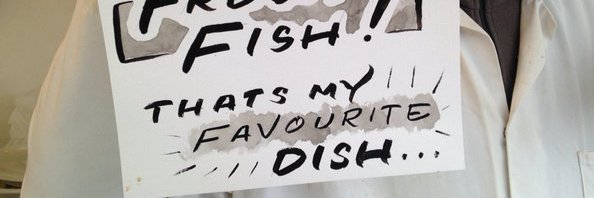 FISH!
THATS MY
FAVOURITE
DISH...